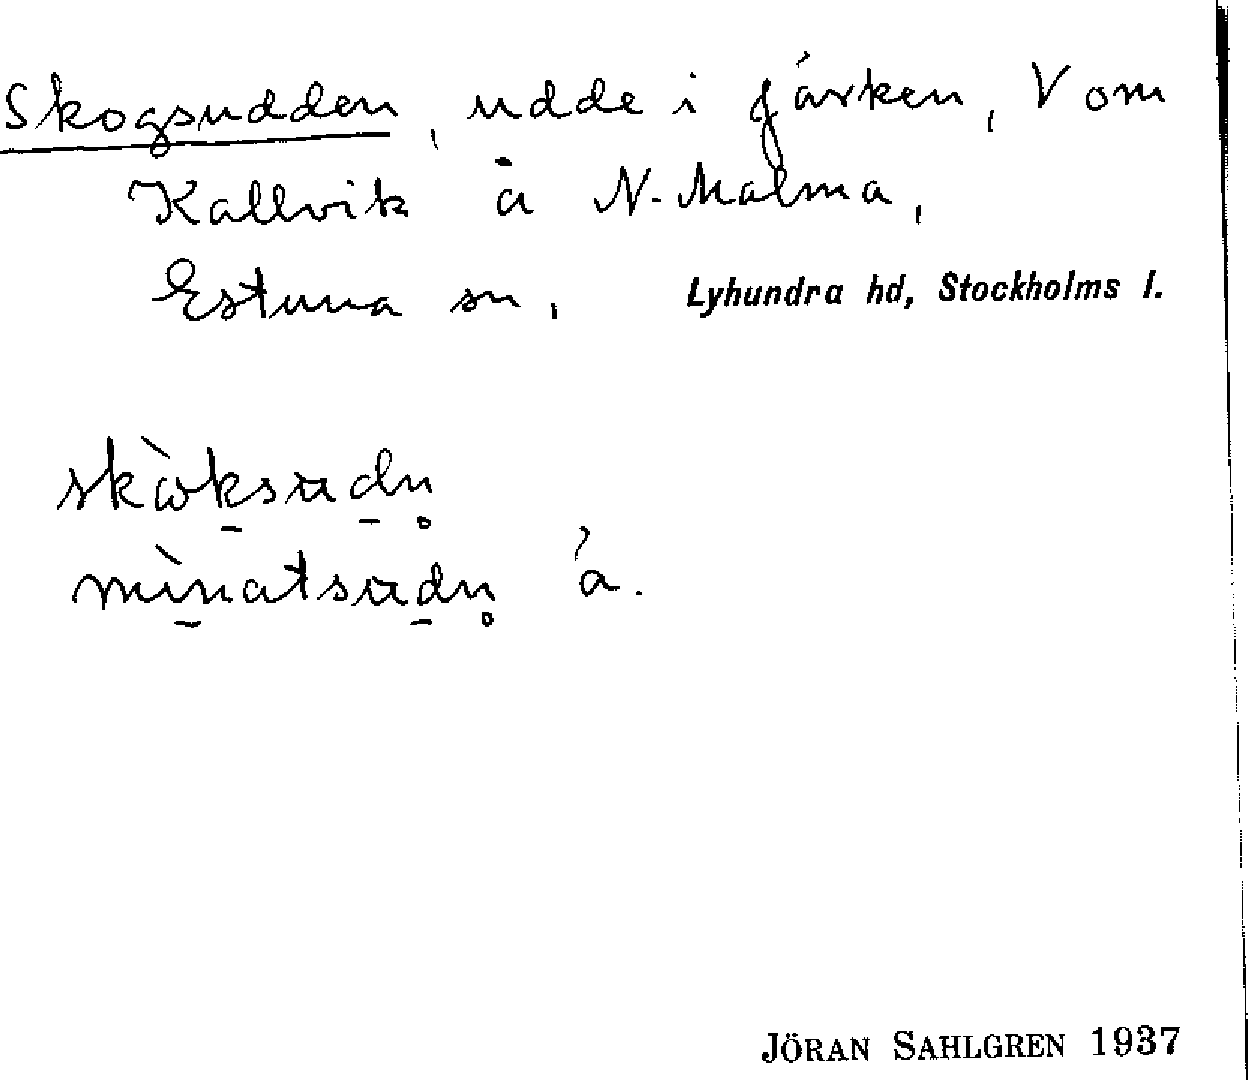 Skogsudden, udde i Järken, V om
Kallvik å N. Malma,
Estuna sn, Lyhundra hd, Stockholms l.
skὼk̠sud̠n̥
mìn̠atsud̠n̥ a.
JÖRAN SAHLGREN 1937